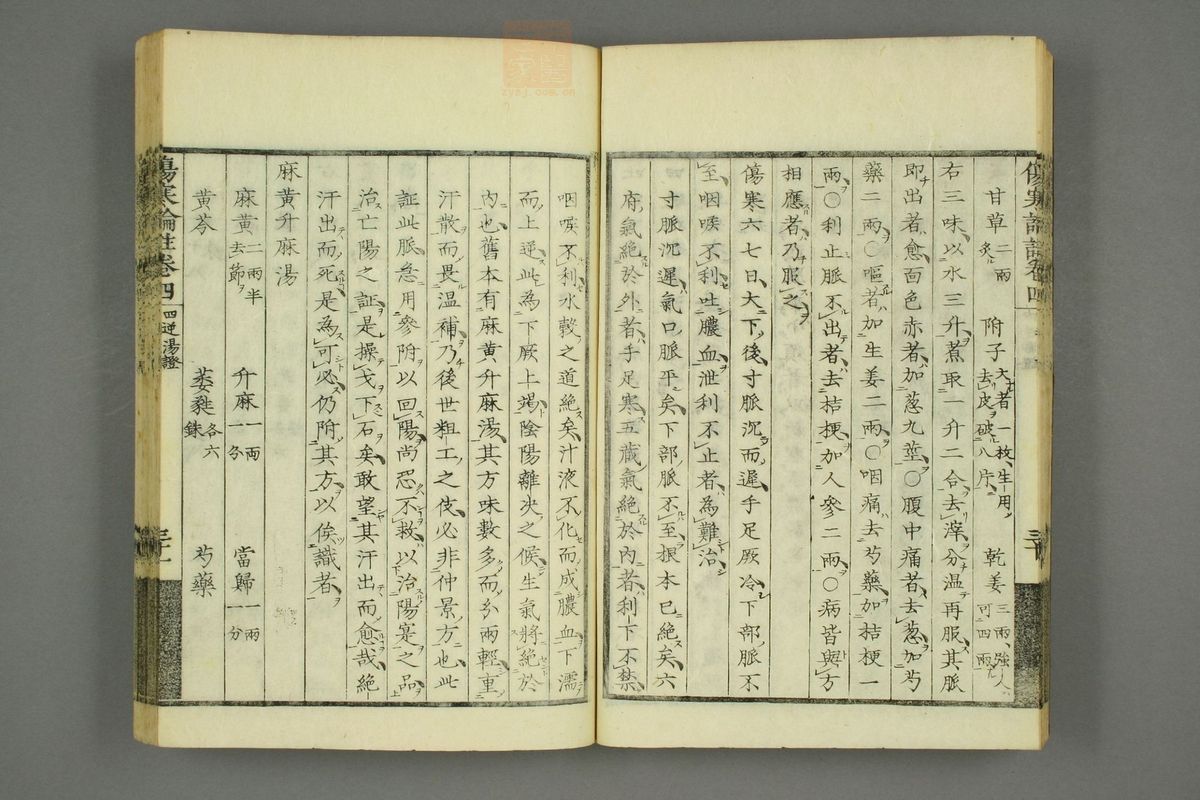 傷寒論註卷四
三十
甘草二兩炙 附子大者一枚生用去皮破八片 乾姜三兩強人可四兩
右三味以水三升煮取一升二合去滓分温再服其脈
即出者愈面色赤者加葱九莖〇腹中痛者去葱加芍
藥二兩〇嘔者加生姜二兩〇咽痛去芍藥加桔梗一
兩〇利止脈不出者去桔梗加人參二兩〇病皆與方
相應者乃服之
傷寒六七日大下後寸脈沉而遲手足厥冷下部脈不
至咽喉不利吐膿血泄利不止者為難治
寸脈沉遲氣口脈平矣下部脈不至根本已絶矣六
府氣絶於外者手足寒五藏氣絶於内者利下不禁
咽喉不利水穀之道絶矣汁液不化而成膿血下濡
而上逆此為下厥上竭陰陽離决之候生氣將絶於
内也舊本有麻黄升麻湯其方味數多而分兩輕重
汗散而畏温補乃後世粗工之伎必非仲景方也此
証此脈急用參附以回陽尚恐不救以治陽寔之品
治亡陽之証是操戈下石矣敢望其汗出而愈哉絶
汗出而死是為可必仍附其方以俟識者
麻黄升麻湯
麻黄二兩半去節 升麻一兩一分 當歸一兩一分
黄芩 萎蕤各六銖 芍藥
傷寒論註卷四
四逆湯證
zysj.com.cn